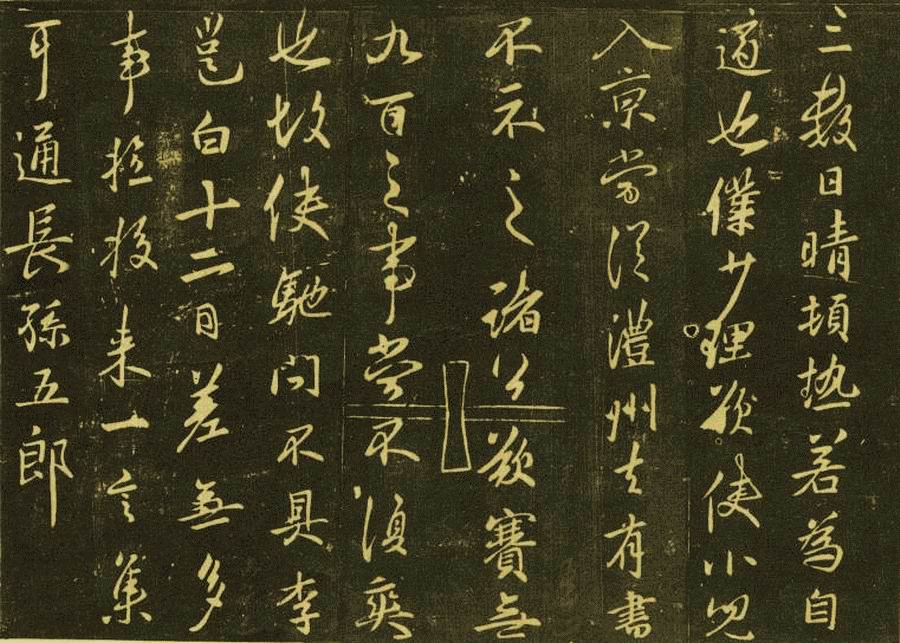 三數日晴頓热若為自
適也僕少理欲使小兒
入京當從澧州去有書
不示之諸公欲賽無
九百之事當不須奕
也故使馳問不具李
邕白十二日差無多
事投来一言集
耳通長孫五郎